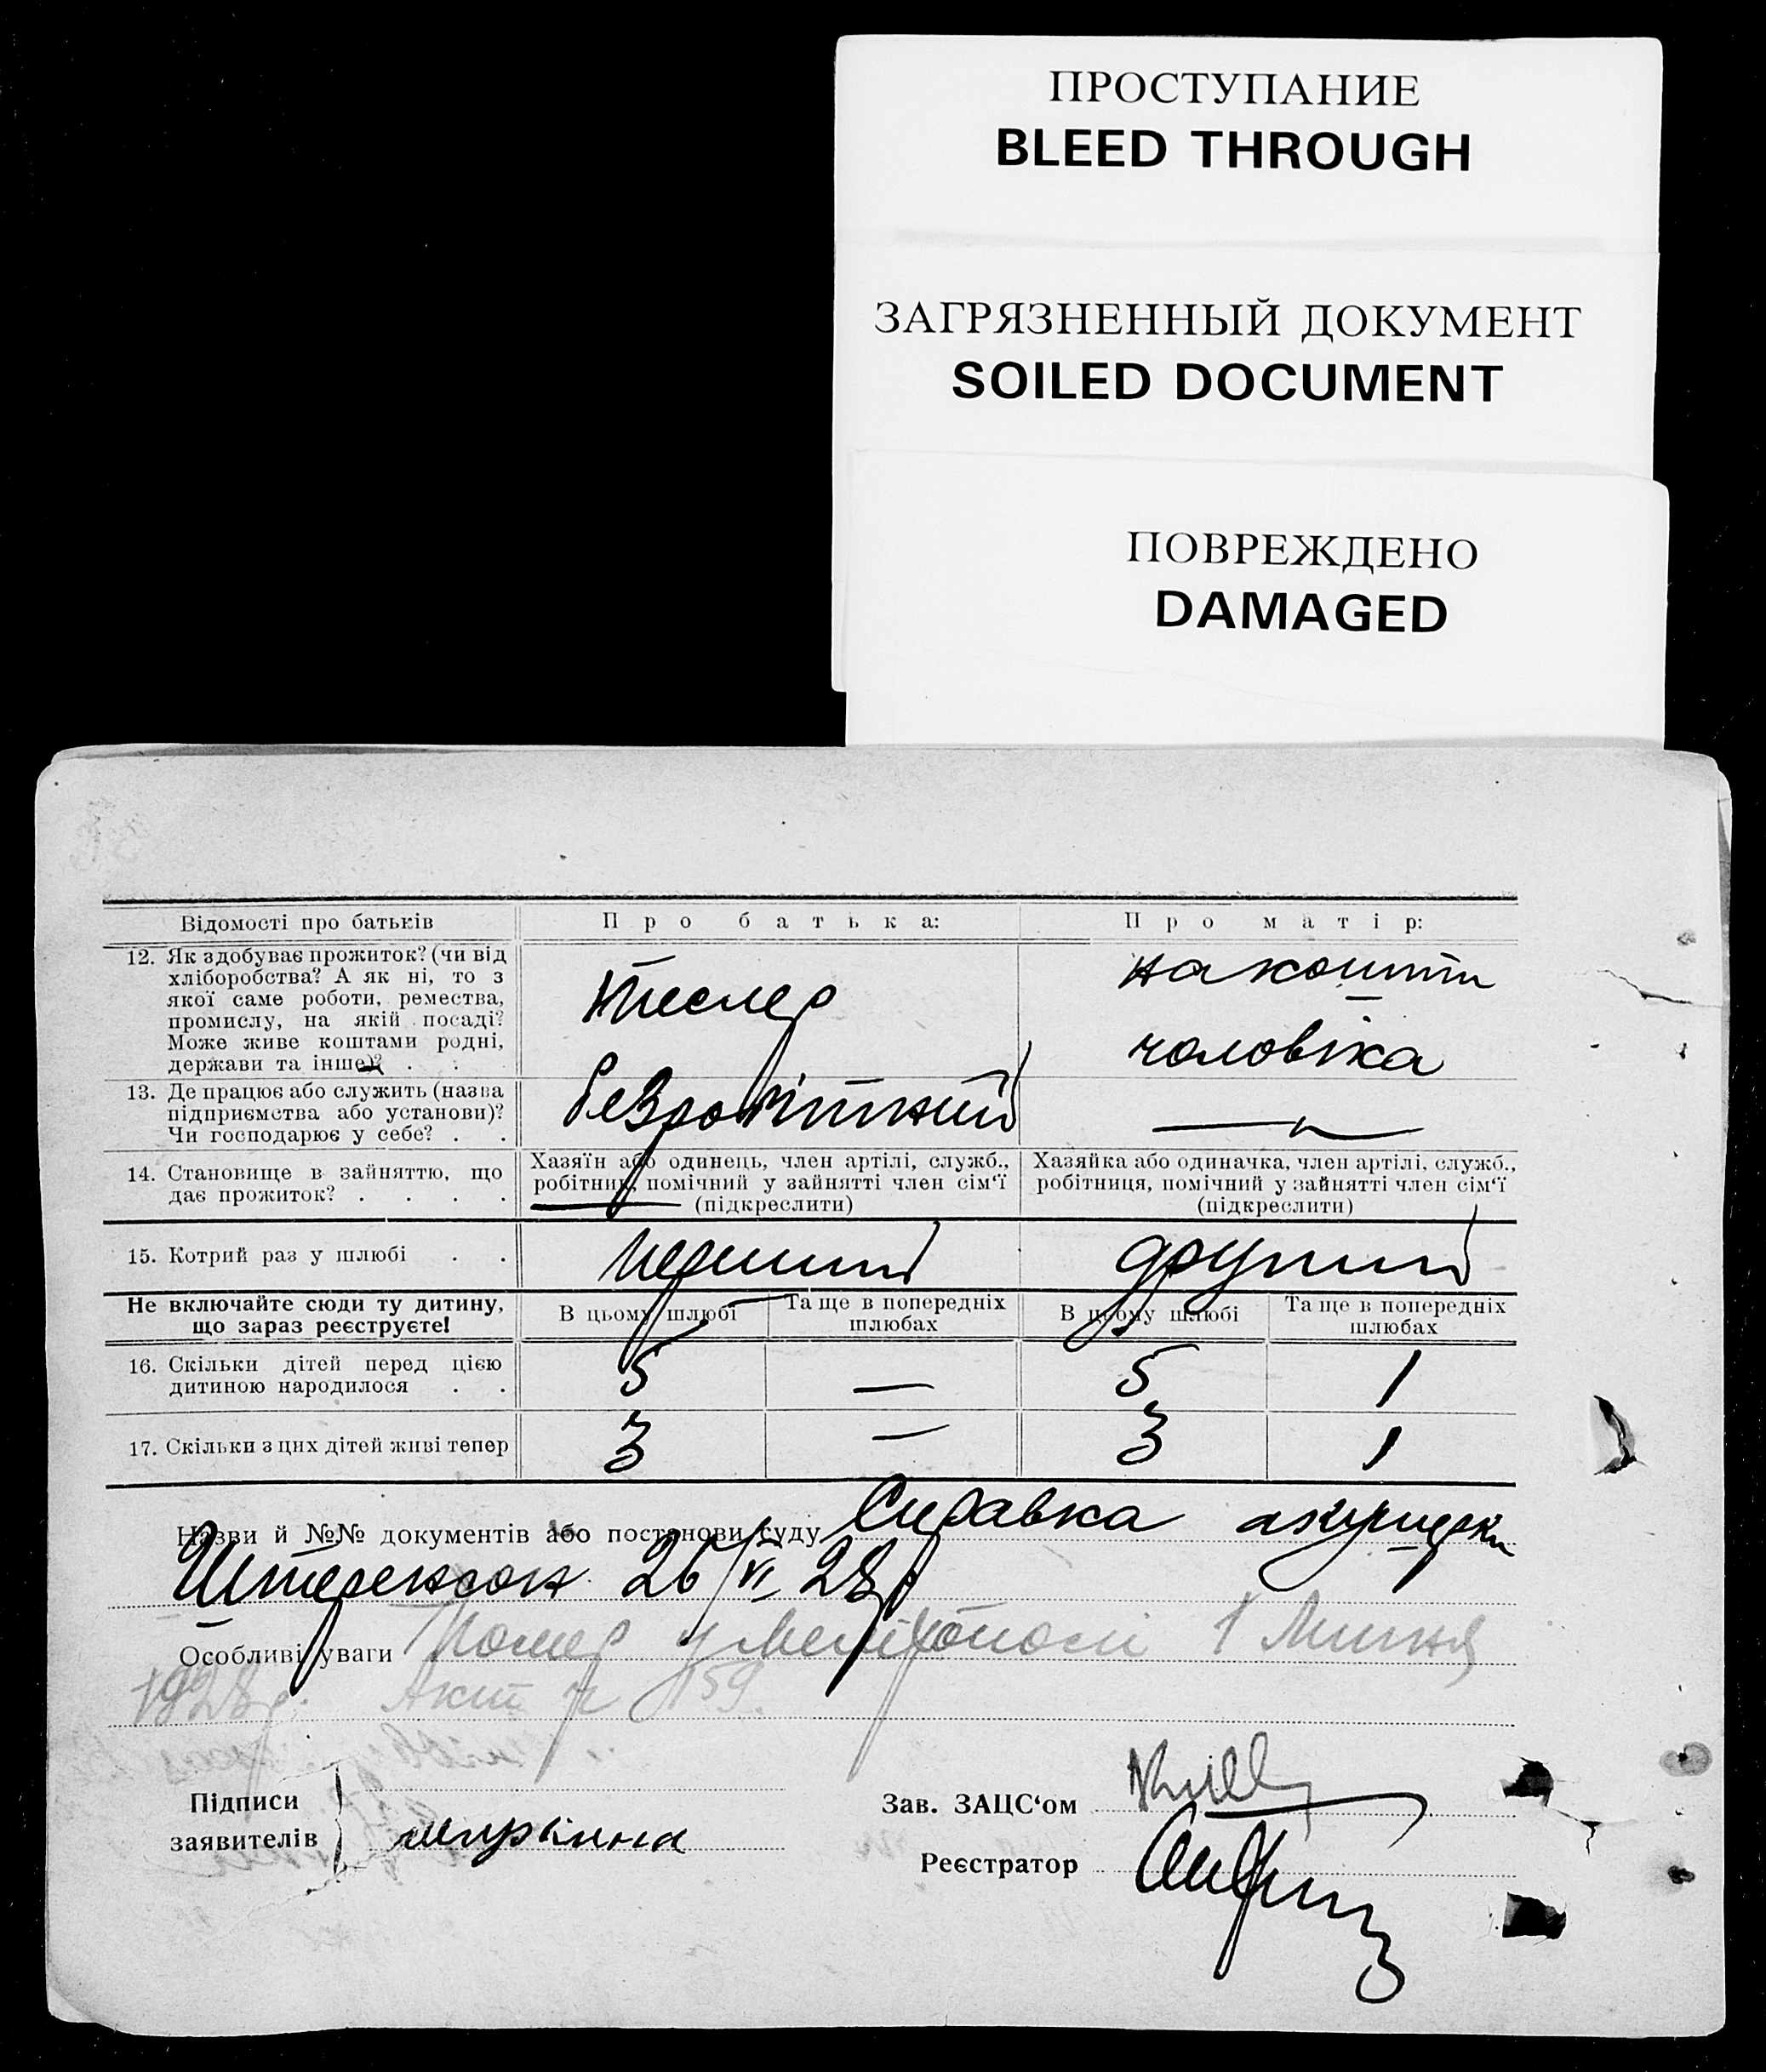 ПРОСТУПАНИЕ
BLEED THROUGH
ЗАГРЯЗНЕННЫЙ ДОКУМЕНТ
SOILED DOCUMENT
ПОВРЕЖДЕНО
DAMAGED
Відомості про батьків Про батька: Про матір:
12. Як здобуває прожиток? (чи від
хліборобства? А як ні, то з
якої саме роботи, ремества,
промислу, на якій посаді?
Може живе коштами родні,
держави та інше)? . .
Тесляр
на кошти
чоловіка
13. Де працює або служить (назва
підприємства або установи)?
Чи господарює у себе? . .
безробітний
— " —
14. Становище в зайняттю, що
дає прожиток? . . . .
Хазяїн або одинець, член артілі, служб.,
робітник, помічний у зайнятті член сім'ї
(підкреслити)
Хазяйка або одиначка, член артілі, служб.,
робітниця, помічний у зайнятті член сім'ї
(підкреслити)
15. Котрий раз у шлюбі . . перший другий
Не включайте сюди ту дитину,
що зараз реєструєте!
В цьому шлюбі Та ще в попередніх
шлюбах
В цьому шлюбі Та ще в попередніх
шлюбах
16. Скільки дітей перед цією
дитиною народилося . .
5 — 5 1
17. Скільки з цих дітей живі тепер 3 — 3 1
Назви й №№ документів або постанови суду Справка акушерки
26/VI 28 р
Особливі уваги Помер у Мелітополі 1 Липня
1928 р. Акт № 159.
Підписи
заявителів
Зав. ЗАЦС'ом
Реєстратор